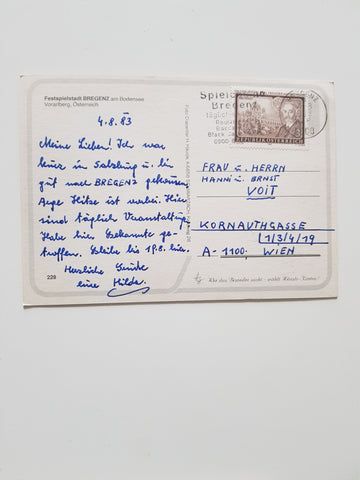 Festspielstadt BREGENZ am Bodensee
Vorarlberg, Österreich
4.8.83
Meine Lieben! Ich war
kurz in Salzburg u. bin
gut nach BREGENZ gekommen,
Arge Hitze ist vorbei. Hier
sind täglich Veranstaltg.
Habe hier Bekannte ge-
troffen. Bleibe bis 19.8. hier.
Herzliche Grüße
eure Hilde.
228
Spielcasino
Bregenz
täglich
Black
REPUBLIK ÖSTERREICH
FRAU u. HERRN
HANNI u. ERNST
VOIT
KORNAUTHGASSE
1/3/4/19
A-1100, WIEN